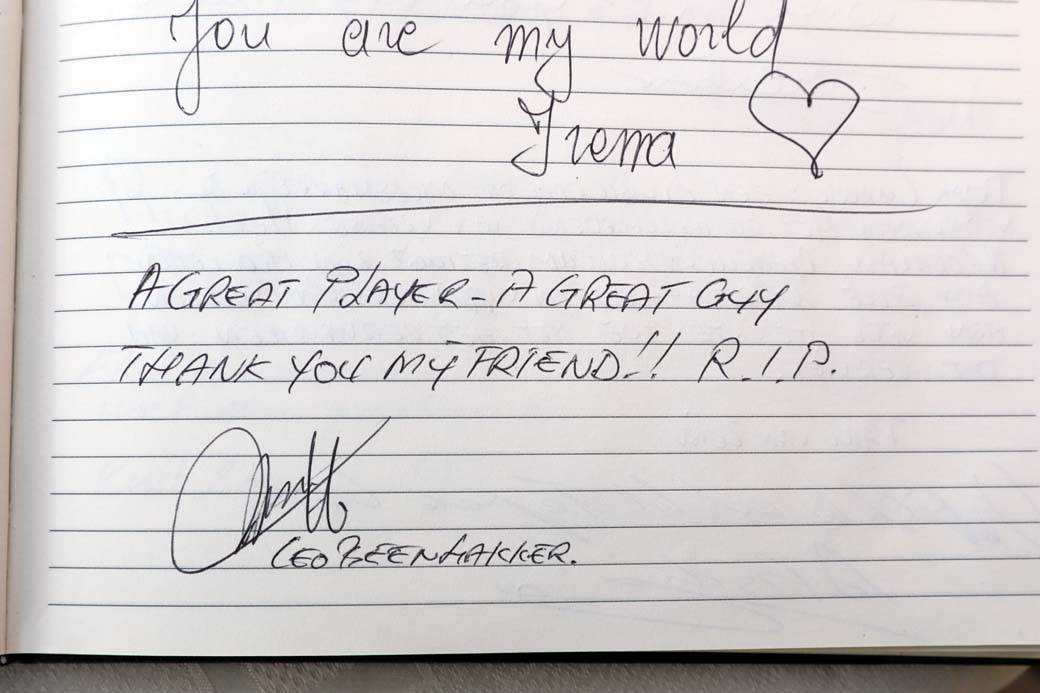 You are my world
Irema
A GREAT PLAYER - A GREAT GUY
THANK YOU MY FRIEND!! R.I.P.
LEO BEENHAKKER.